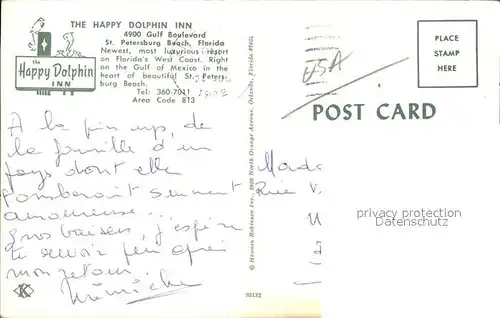 THE HAPPY DOLPHIN INN
4900 Gulf Boulevard
St. Petersburg Beach, Florida
Newest, most luxurious resort
on Florida's West Coast. Right
on the Gulf of Mexico in the
heart of beautiful St. Peters-
burg Beach.
Tel: 360-7011
Area Code 813
the
Happy Dolphin
INN
USA
PLACE
STAMP
HERE
POST CARD
A la pin up, de
la famille d'un
pays dont elle
tomberait sûrement
amoureuse...
Gros baisers, j'espère
te revoir peu après
mon retour.
Mimiche
Mada
Rue V
privacy protection
Datenschutz
© Hannau Robinson Inc., North Orange Avenue, Orlando, Florida
K
70132